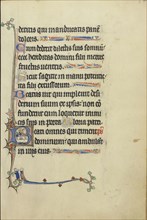 deritis qui manducatis panem
doloris
Cum dederit dilectis suis sompnu
ecce hereditas domini filii mer
ces fructus ventris
Sicut sagitte in manu potentis
ita filii excussorum
Beatus vir qui implevit de
siderium suum ex ipsis non con
fundetur cum loquetur inimi
cis suis in porta
Beati omnes qui timent
dominum qui ambulant
in viis eius